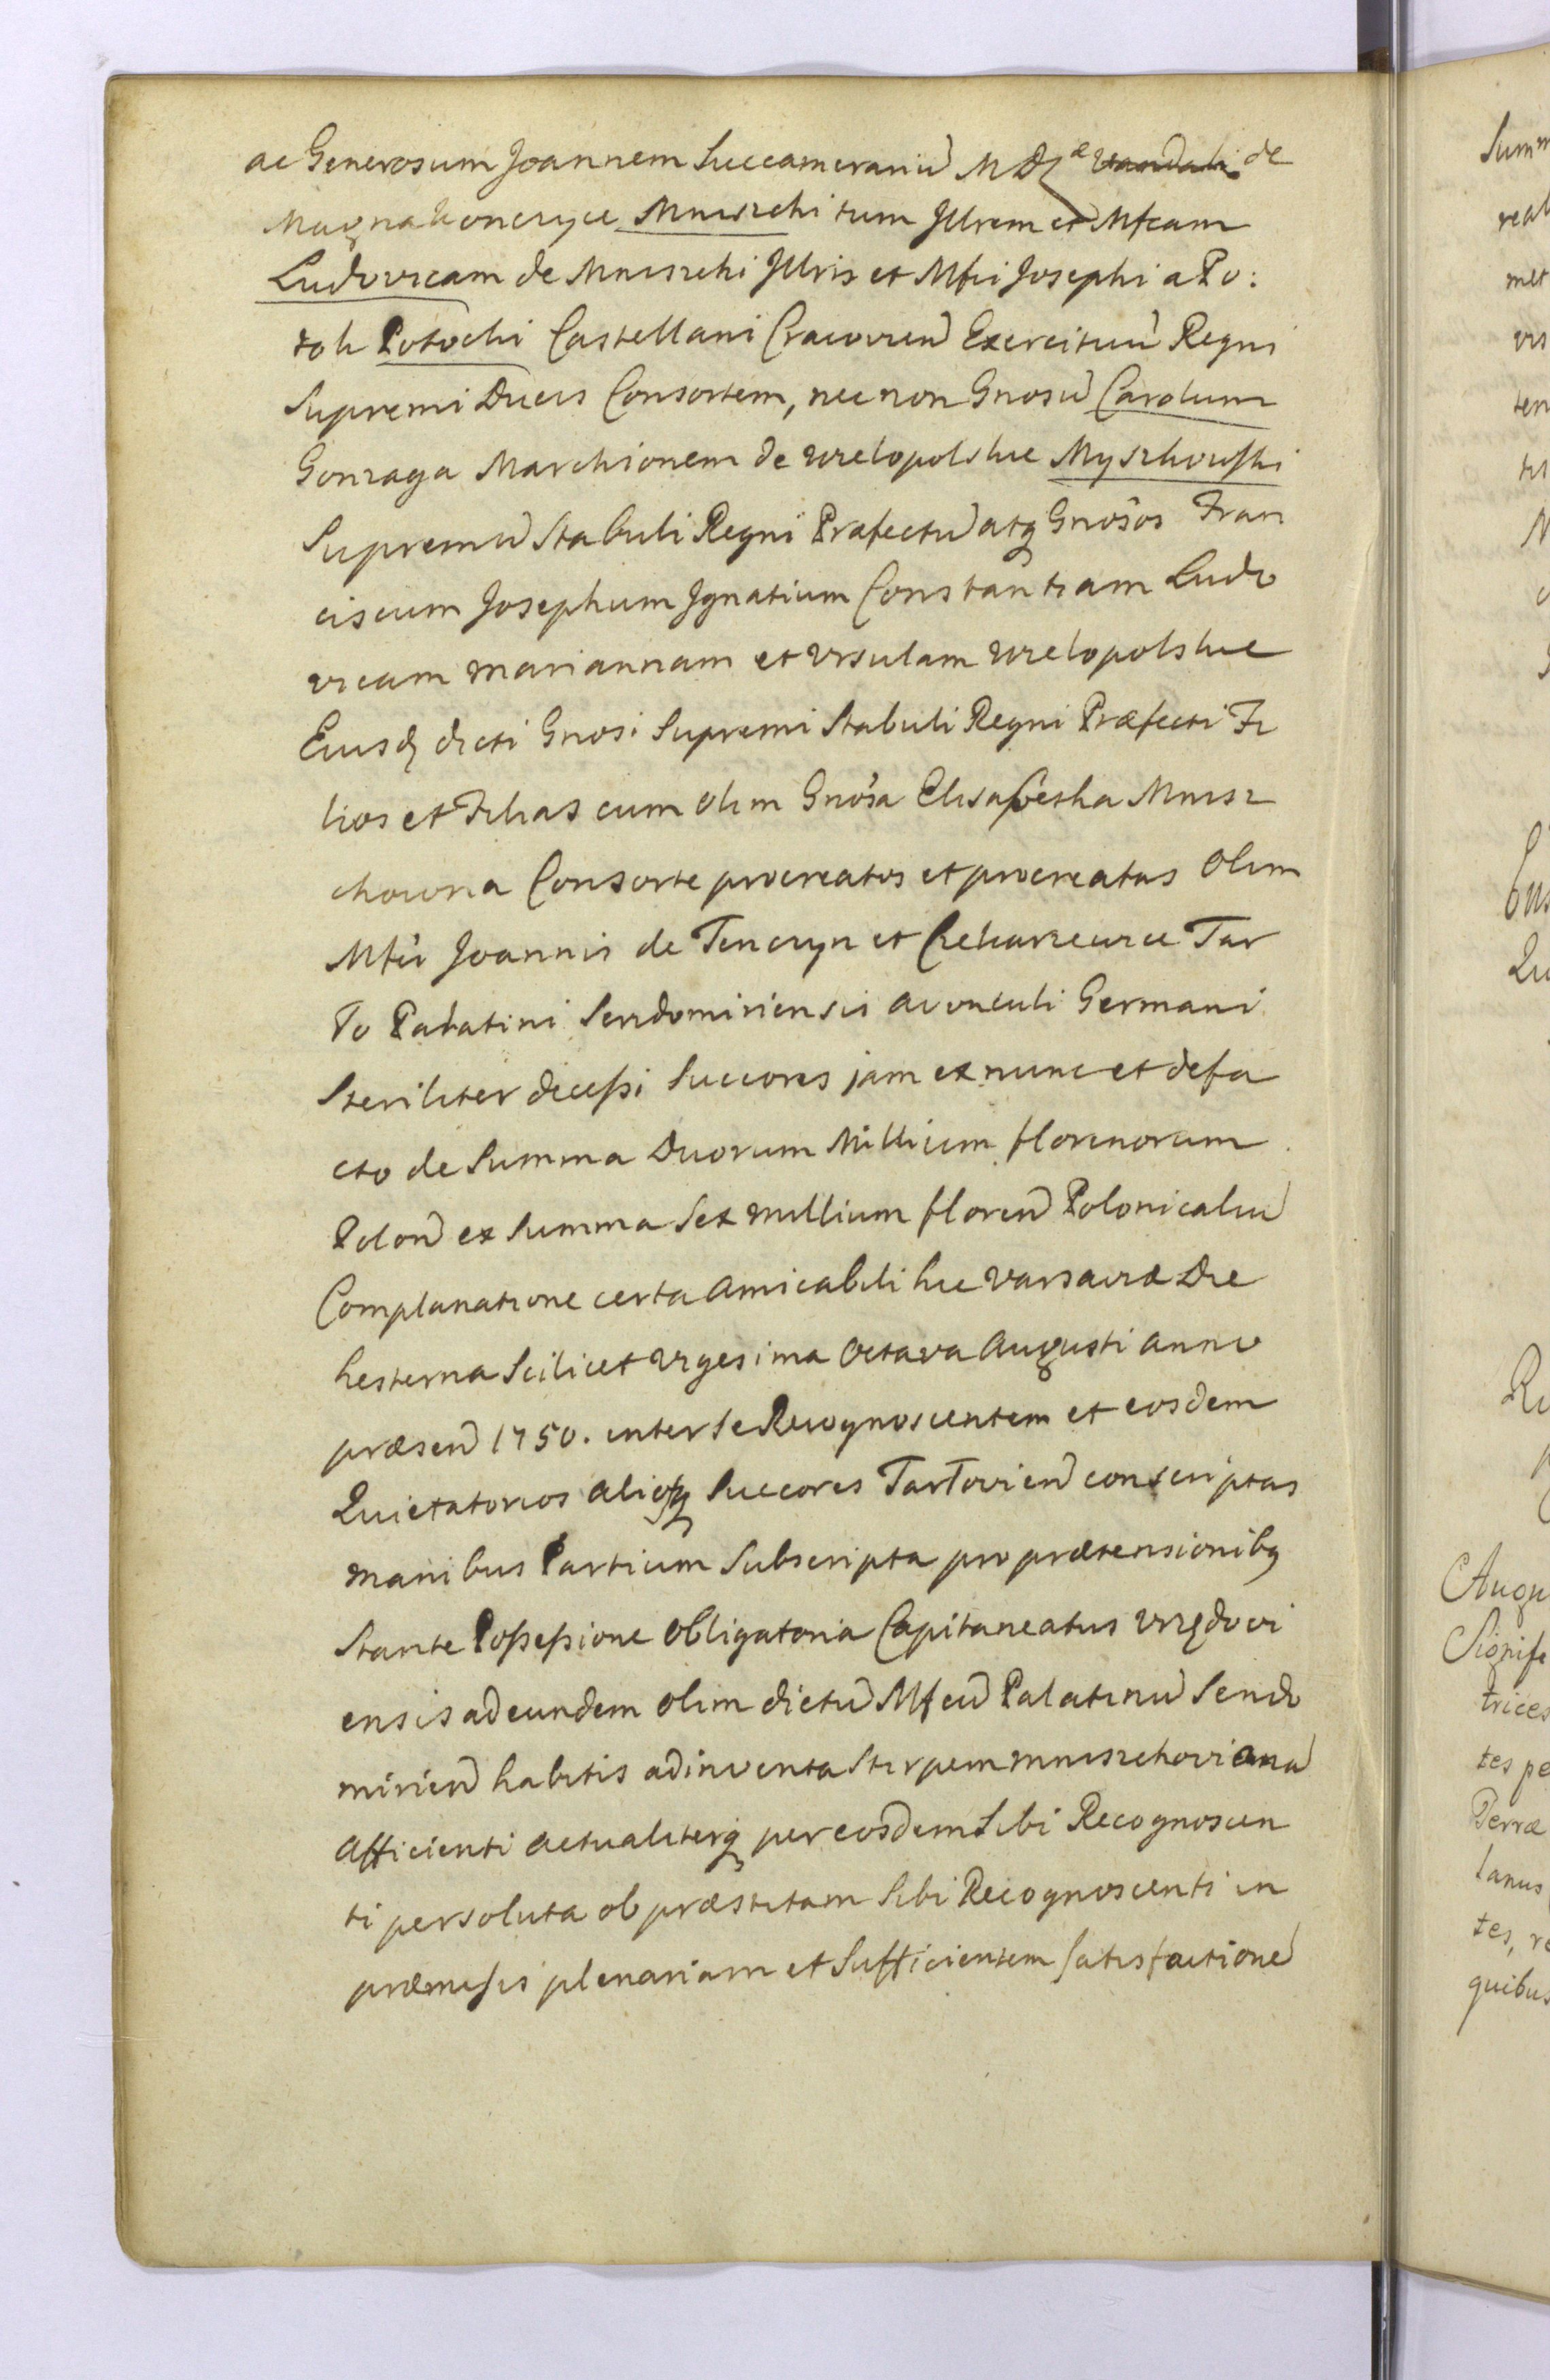 ac Generosum Joannem Succamerariu M D L de
Magna Konczyce Mniszchi tum Jllrem et Mfcam
Ludovicam de Mniszchi Jllris et Mfci Josephi a Po:
tok Potocki Castellani Cracovien Exercituu Regni
Supremi Ducis Consortem, nec non Gnosu Carolum
Gonzaga Marchionem de Wielopolskie Myszkowski
Supremu Stabuli Regni Præfectu atq Gnosos Fran
ciscum Josephum Jgnatium Constantiam Ludo
vicam Mariannam et Ursulam Wielopolskie
Eiusd dicti Gnosi Supremi Stabuli Regni Præfecti Fi
lios et Filias cum olim Gnosa Elisabetha Mnisz
chowna Consorte procreatos et procreatas Olim
Mfci Joannis de Tenczyn et Tar
ło Palatini Sendomiriensis Avunculi Germani
Steriliter decessi Succores jam ex nunc et defa
cto de Summa Duorum Millium florenorum
Polon ex Summa Sex millium floren Polonicaliu
Complanatione certa Amicabili hic Varsaviæ Die
hesterna Scilicet Vigesima Octava Augusti anno
præsen 1750. inter se Recognoscentem et eosdem
Quietatorios aliosq Succores Tarłovien conscriptas
manibus Partium Subscripta pro prætensionibq
Stante Possessione Obligatoria Capitaneatus Urzędovi
ensis ad eundem olim dictu Mfcu Palatinu Sendo
mirien habitis adinventa Stirpem Mniszchoviana
Afficienti actualiterq per eosdem Sibi Recognoscen
ti persoluta ob præstitam Sibi Recognoscenti in
præmissis plenariam et Sufficientem Satisfactione